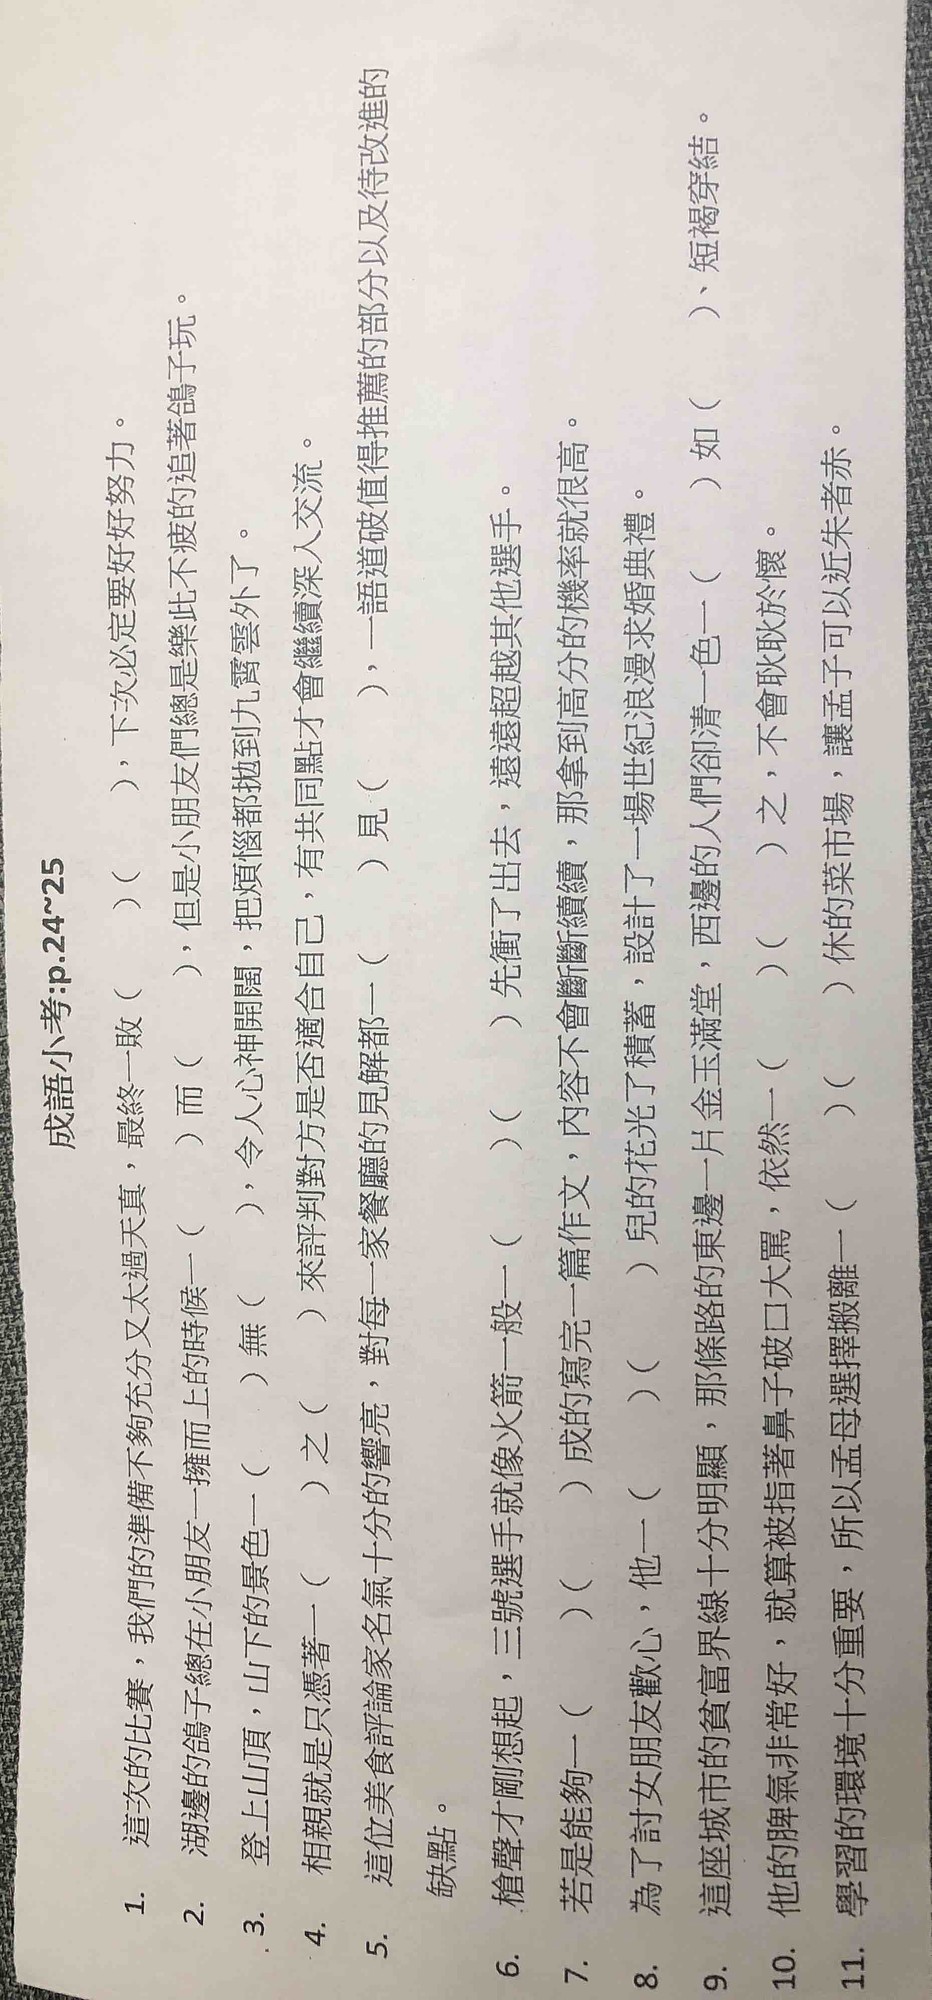 成語小考:p.24~25
1. 這次的比賽，我們的準備不夠充分又太過天真，最終一敗（　　）（　　），下次必定要好好努力。
2. 湖邊的鴿子總在小朋友一擁而上的時候一（　　）而（　　），但是小朋友們總是樂此不疲的追著鴿子玩。
3. 登上山頂，山下的景色一（　　）無（　　），令人心神開闊，把煩惱都拋到九霄雲外了。
4. 相親就是只憑著一（　　）之（　　）來評判對方是否適合自己，有共同點才會繼續深入交流。
5. 這位美食評論家名氣十分的響亮，對每一家餐廳的見解都一（　　）見（　　），一語道破值得推薦的部分以及待改進的
缺點。
6. 槍聲才剛想起，三號選手就像火箭一般一（　　）（　　）先衝了出去，遠遠超越其他選手。
7. 若是能夠一（　　）（　　）成的寫完一篇作文，內容不會斷斷續續，那拿到高分的機率就很高。
8. 為了討女朋友歡心，他一（　　）（　　）兒的花光了積蓄，設計了一場世紀浪漫求婚典禮。
9. 這座城市的貧富界線十分明顯，那條路的東邊一片金玉滿堂，西邊的人們卻清一色一（　　）如（　　）、短褐穿結。
10. 他的脾氣非常好，就算被指著鼻子破口大罵，依然一（　　）（　　）之，不會耿耿於懷。
11. 學習的環境十分重要，所以孟母選擇搬離一（　　）（　　）休的菜市場，讓孟子可以近朱者赤。